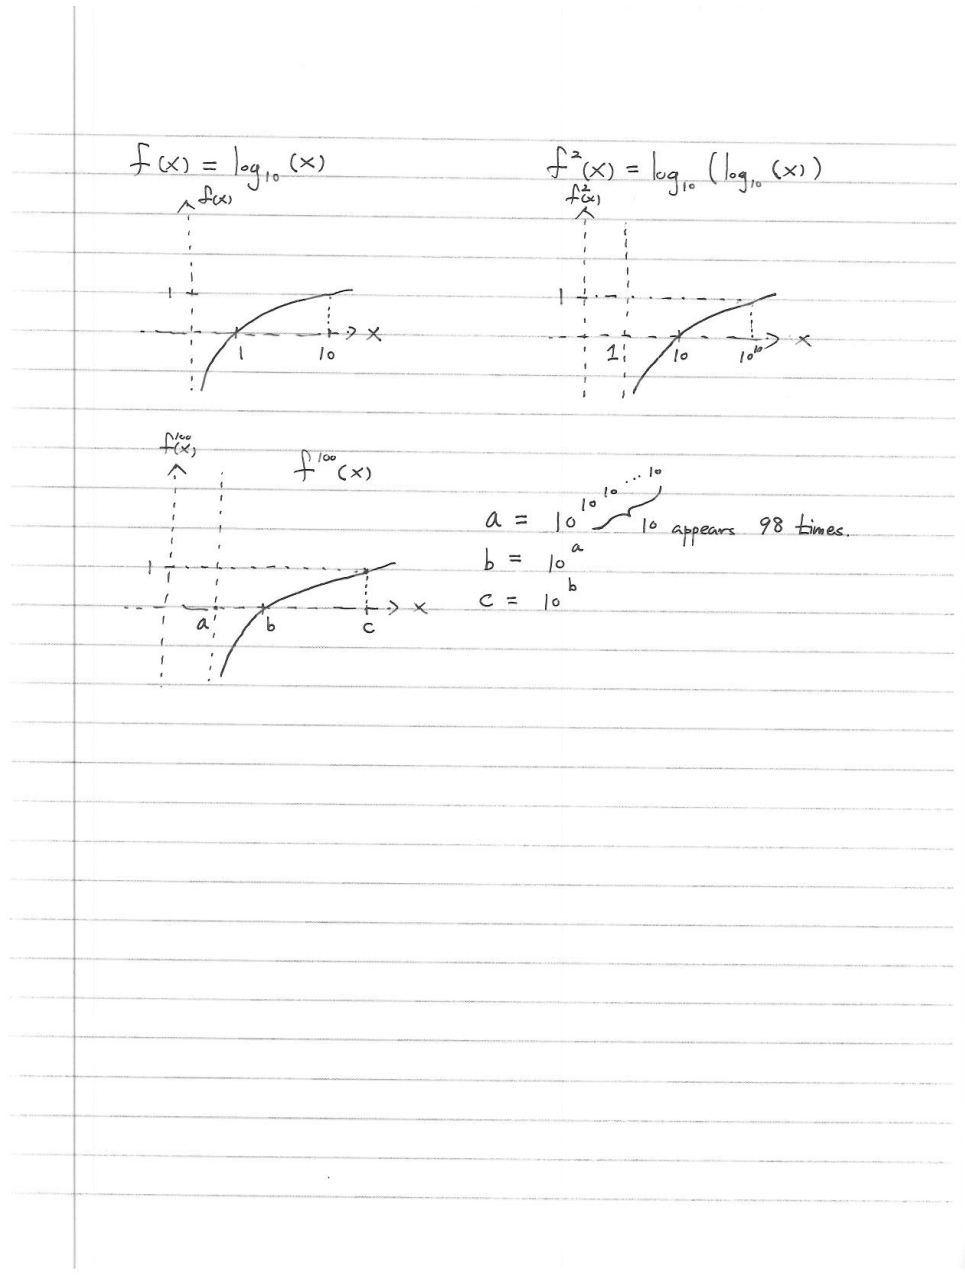 f(x) = log₁₀(x)
f(x)
1
1 10 x
f²(x) = log₁₀(log₁₀(x))
f²(x)
1
1 10 10¹⁰ x
f¹⁰⁰(x)
f¹⁰⁰(x)
1
a b c x
a = 10^10^10^...^10 10 appears 98 times.
b = 10^a
c = 10^b